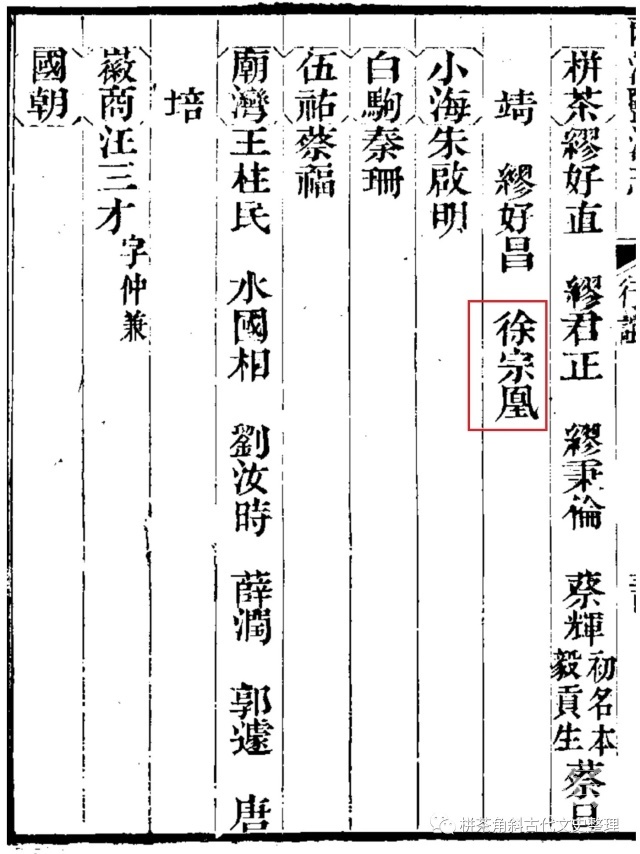 行誼
栟茶繆好直 繆君正 繆秉倫 蔡輝初名本毅貢生 蔡日
靖 繆好昌 徐宗凰
小海朱啟明
白駒秦珊
伍祐蔡福
廟灣王柱民 水國相 劉汝時 薛潤 郭遽 唐
培
徽商汪三才字仲兼
國朝
栟茶角斜古代文史整理